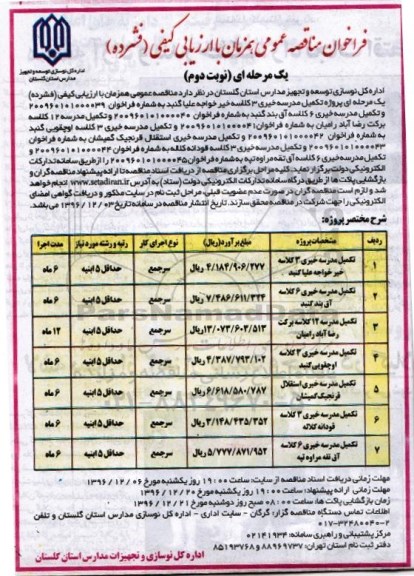 فراخوان مناقصه عمومی همزمان با ارزیابی کیفی (فشرده)
یک مرحله ای (نوبت دوم)
اداره کل نوسازی توسعه و تجهیز
مدارس استان گلستان
اداره کل نوسازی توسعه و تجهیز مدارس استان گلستان در نظر دارد مناقصه عمومی همزمان با ارزیابی کیفی (فشرده)
یک مرحله ای پروژه تکمیل مدرسه خیری ۳ کلاسه خیر خواجه علیا گنبد به شماره فراخوان ۲۰۰۹۶۰۱۰۱۰۰۰۰۳۹
و تکمیل مدرسه خیری ۶ کلاسه آق بند گنبد به شماره فراخوان ۲۰۰۹۶۰۱۰۱۰۰۰۰۴۰ و تکمیل مدرسه ۱۲ کلاسه
برکت رضا آباد رامیان به شماره فراخوان ۲۰۰۹۶۰۱۰۱۰۰۰۰۴۱ و تکمیل مدرسه خیری ۳ کلاسه اوچقویی گنبد
به شماره فراخوان ۲۰۰۹۶۰۱۰۱۰۰۰۰۴۲ و تکمیل مدرسه خیری استقلال قرنجیک گمیشان به شماره فراخوان
۲۰۰۹۶۰۱۰۱۰۰۰۰۴۳ و تکمیل مدرسه خیری ۳ کلاسه قودانه کلاله به شماره فراخوان ۲۰۰۹۶۰۱۰۱۰۰۰۰۴۴ و
تکمیل مدرسه خیری ۶ کلاسه آق تقه مراوه تپه به شماره فراخوان ۲۰۰۹۶۰۱۰۱۰۰۰۰۴۵ را از طریق سامانه تدارکات
الکترونیکی دولت برگزار نماید. کلیه مراحل برگزاری مناقصه از دریافت اسناد مناقصه تا ارائه پیشنهاد مناقصه گران و
بازگشایی پاکت ها از طریق درگاه سامانه تدارکات الکترونیکی دولت (ستاد) به آدرس www.setadiran.ir انجام خواهد
شد و لازم است مناقصه گران در صورت عدم عضویت قبلی، مراحل ثبت نام در سایت مذکور و دریافت گواهی امضای
الکترونیکی را جهت شرکت در مناقصه محقق سازند. تاریخ انتشار مناقصه در سامانه تاریخ ۱۳۹۶/۱۲/۰۳ می باشد.
شرح مختصر پروژه:
ردیف مشخصات پروژه مبلغ برآورد (ریال) نوع اجرای کار رتبه و رشته مورد نیاز مدت اجرا
۱ تکمیل مدرسه خیری ۳ کلاسه خیر خواجه علیا گنبد ۴/۱۸۴/۹۰۶/۲۷۷ ریال سرجمع حداقل ۵ ابنیه ۶ ماه
۲ تکمیل مدرسه خیری ۶ کلاسه آق بند گنبد ۷/۴۸۶/۶۱۱/۳۲۴ ریال سرجمع حداقل ۵ ابنیه ۶ ماه
۳ تکمیل مدرسه ۱۲ کلاسه برکت رضا آباد رامیان ۱۳/۰۷۳/۶۰۳/۵۱۳ ریال سرجمع حداقل ۵ ابنیه ۱۲ ماه
۴ تکمیل مدرسه خیری ۳ کلاسه اوچقویی گنبد ۴/۳۸۷/۷۹۳/۱۰۲ ریال سرجمع حداقل ۵ ابنیه ۶ ماه
۵ تکمیل مدرسه خیری استقلال قرنجیک گمیشان ۶/۶۱۸/۵۸۰/۷۸۷ ریال سرجمع حداقل ۵ ابنیه ۶ ماه
۶ تکمیل مدرسه خیری ۳ کلاسه قودانه کلاله ۳/۱۴۸/۴۳۵/۳۵۲ ریال سرجمع حداقل ۵ ابنیه ۶ ماه
۷ تکمیل مدرسه خیری ۶ کلاسه آق تقه مراوه تپه ۵/۷۷۷/۸۷۱/۹۵۲ ریال سرجمع حداقل ۵ ابنیه ۶ ماه
مهلت زمانی دریافت اسناد مناقصه از سایت: ساعت ۱۹:۰۰ روز یکشنبه مورخ ۱۳۹۶/۱۲/۰۶
مهلت زمانی ارائه پیشنهاد: ساعت ۱۹:۰۰ روز یکشنبه مورخ ۱۳۹۶/۱۲/۲۰
زمان بازگشایی پاکت ها: ساعت ۰۸:۰۰ صبح روز دوشنبه مورخ ۱۳۹۶/۱۲/۲۱
اطلاعات تماس دستگاه مناقصه گزار: گرگان - سایت اداری - اداره کل نوسازی مدارس استان گلستان و تلفن
۰۱۷-۳۲۴۸۰۰۴۰-۲
مرکز پشتیبانی و راهبری سامانه: ۰۲۱۴۱۹۳۴
دفتر ثبت نام استان تهران: ۸۸۹۶۹۷۳۷ و ۸۵۱۹۳۷۶۸
اداره کل نوسازی و تجهیزات مدارس استان گلستان